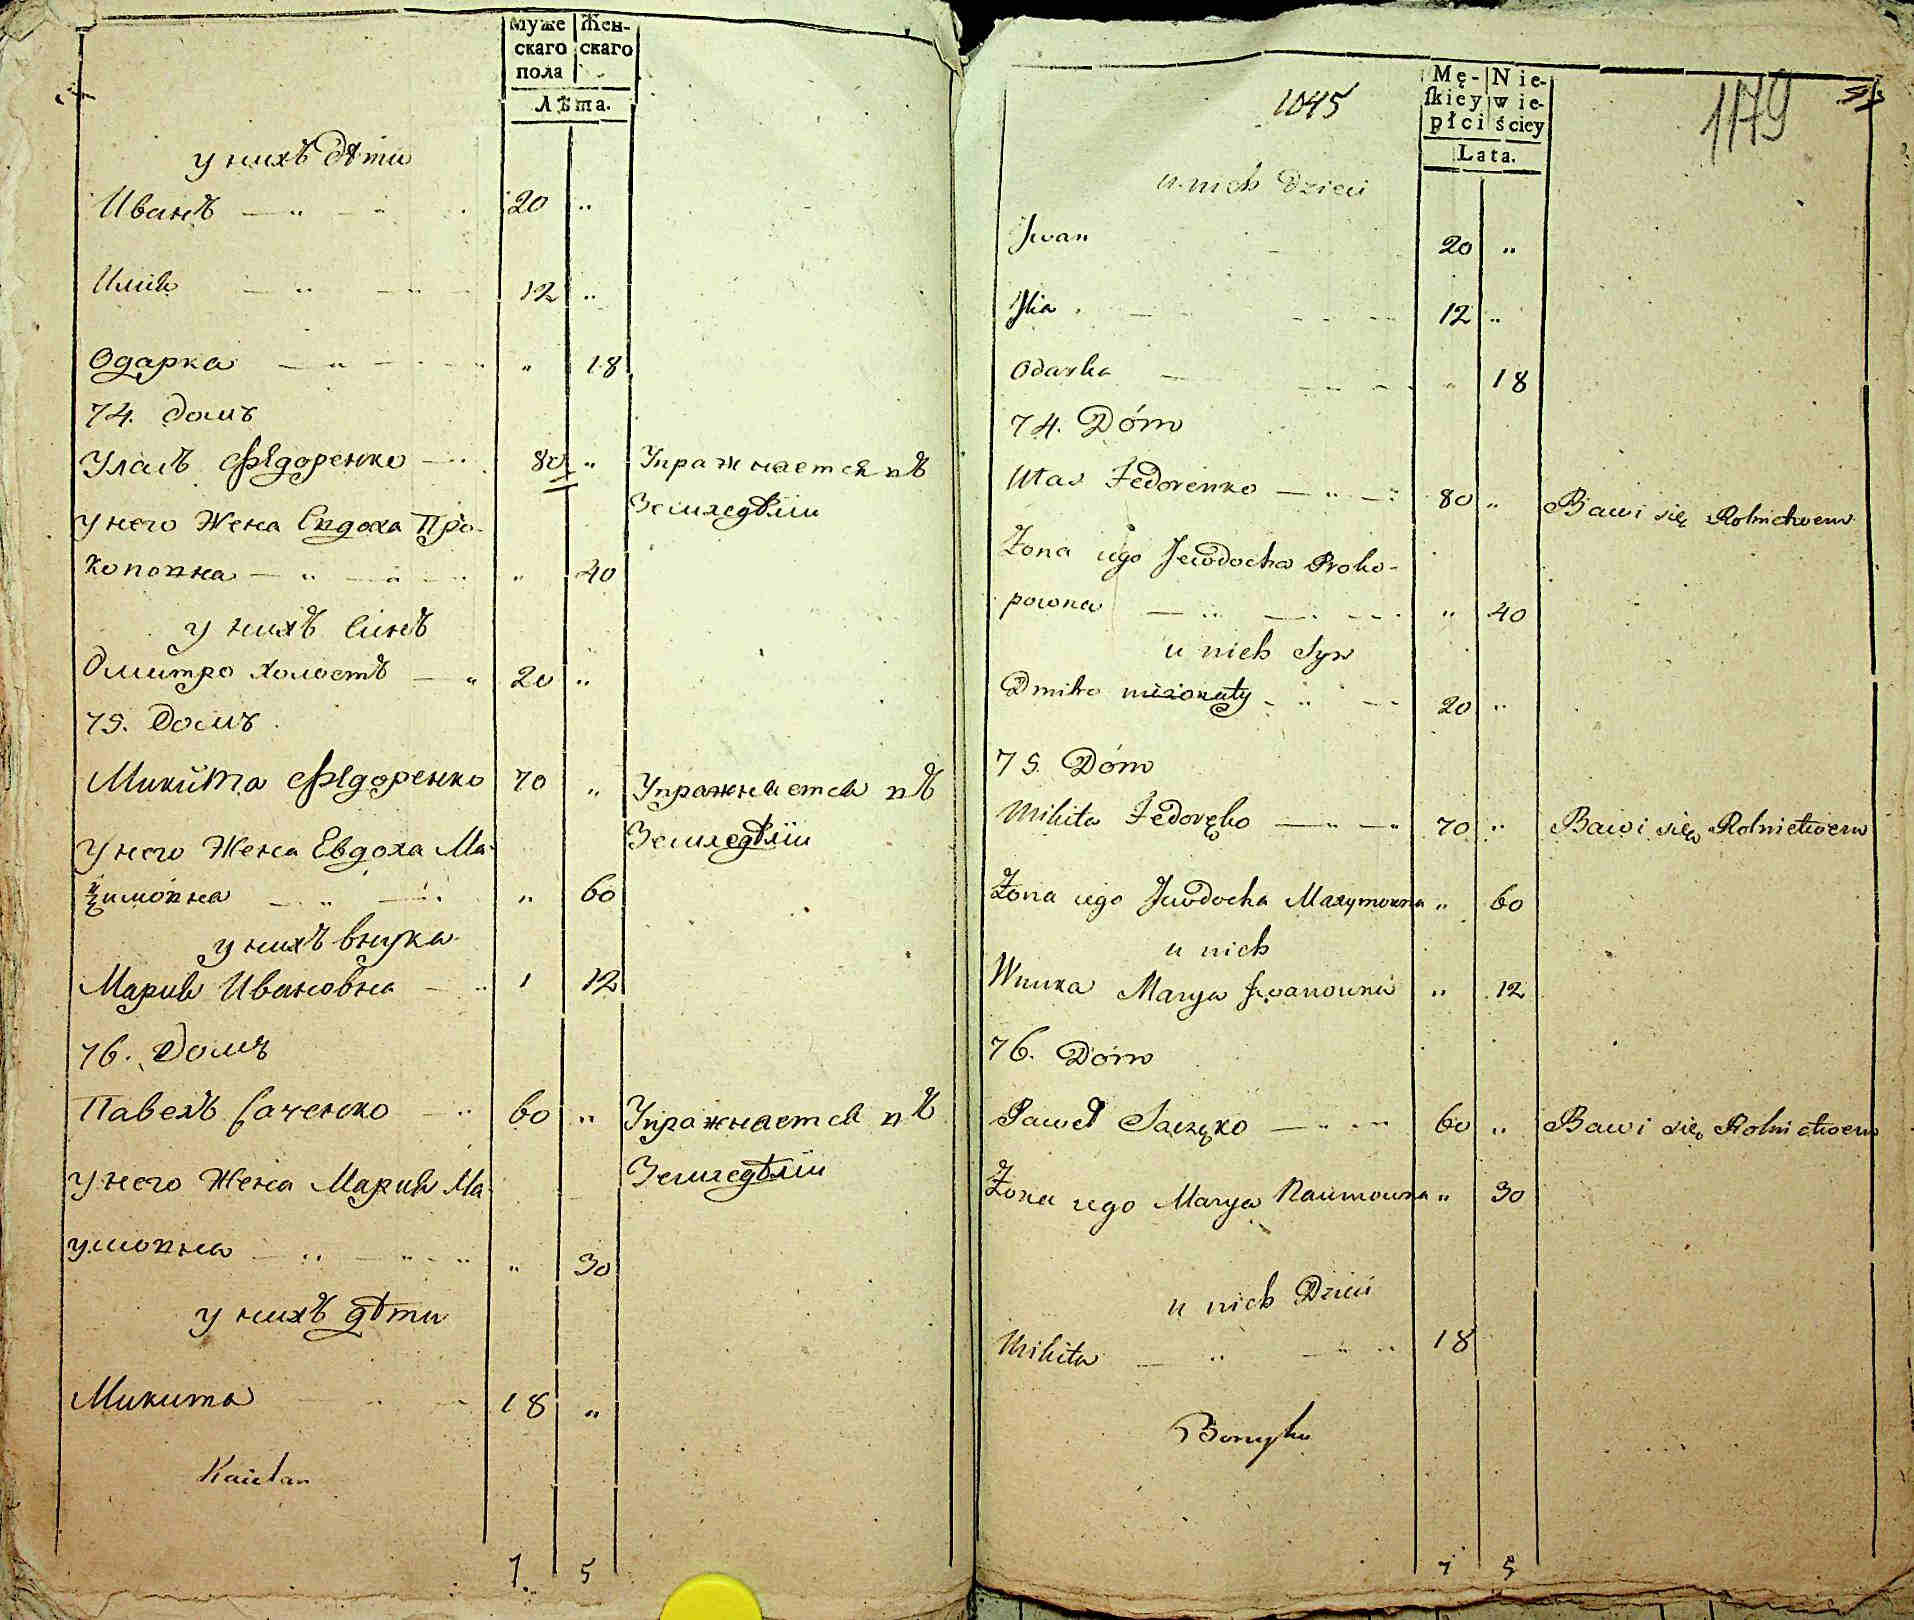 Муже Жен-
скаго скаго
пола
Лѣта.
у нихъ дѣти
Иванъ 20 "
Илия 12 "
Одарка " 18
74. домъ
Уласъ Фѣдоренко 80 " Упражняется въ
Земледѣлїи
у него Жена Евдоха Про-
коповна " 40
у нихъ Синъ
Дмитро холостъ " 20 "
75. Домъ
Микита Фѣдоренко 70 " Упражняется въ
Земледѣлїи
у него Жена Евдоха Ма-
ксимовна " 60
у нихъ внука
Мария Ивановна 1 12
76. Домъ
Павелъ Саченко 60 " Упражняется въ
Земледѣлїи
у него Жена Мария На-
умовна " 30
у нихъ дѣти
Микита 18 "
Kaietan
7. 5
1045
1179
Mę- Nie-
ſkiey wie-
płci ściey
Lata.
u nich Dzieci
Jwan 20 "
Jlia 12 "
Odarka " 18
74. Dóm
Ułas Fedorenko 80 " Bawi się Rolnictwem
Żona iego Jewdocha Proko-
powna " 40
u nich Syn
Dmitro nieżonaty 20 "
75. Dóm
Mikita Fedoręko 70 " Bawi się Rolnictwem
Żona iego Jewdocha Maxymowna " 60
u nich
Wnuka Marya Jwanowna " 12
76. Dóm
Paweł Saczęko 60 " Bawi się Rolnictwem
Żona iego Marya Naumowna " 30
u nich Dzieci
Mikita 18
7 5